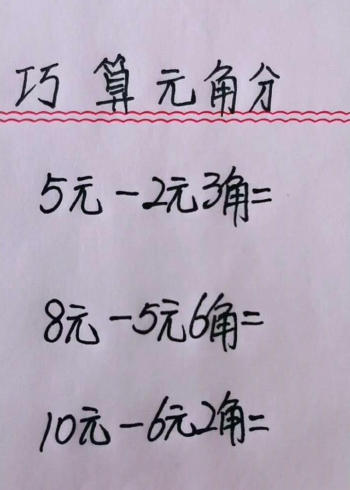 巧算元角分
5元-2元3角=
8元-5元6角=
10元-6元2角=